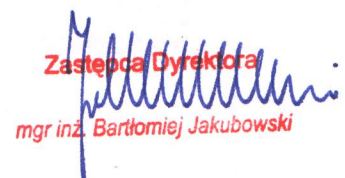 Zastępca Dyrektora
mgr inż. Bartłomiej Jakubowski